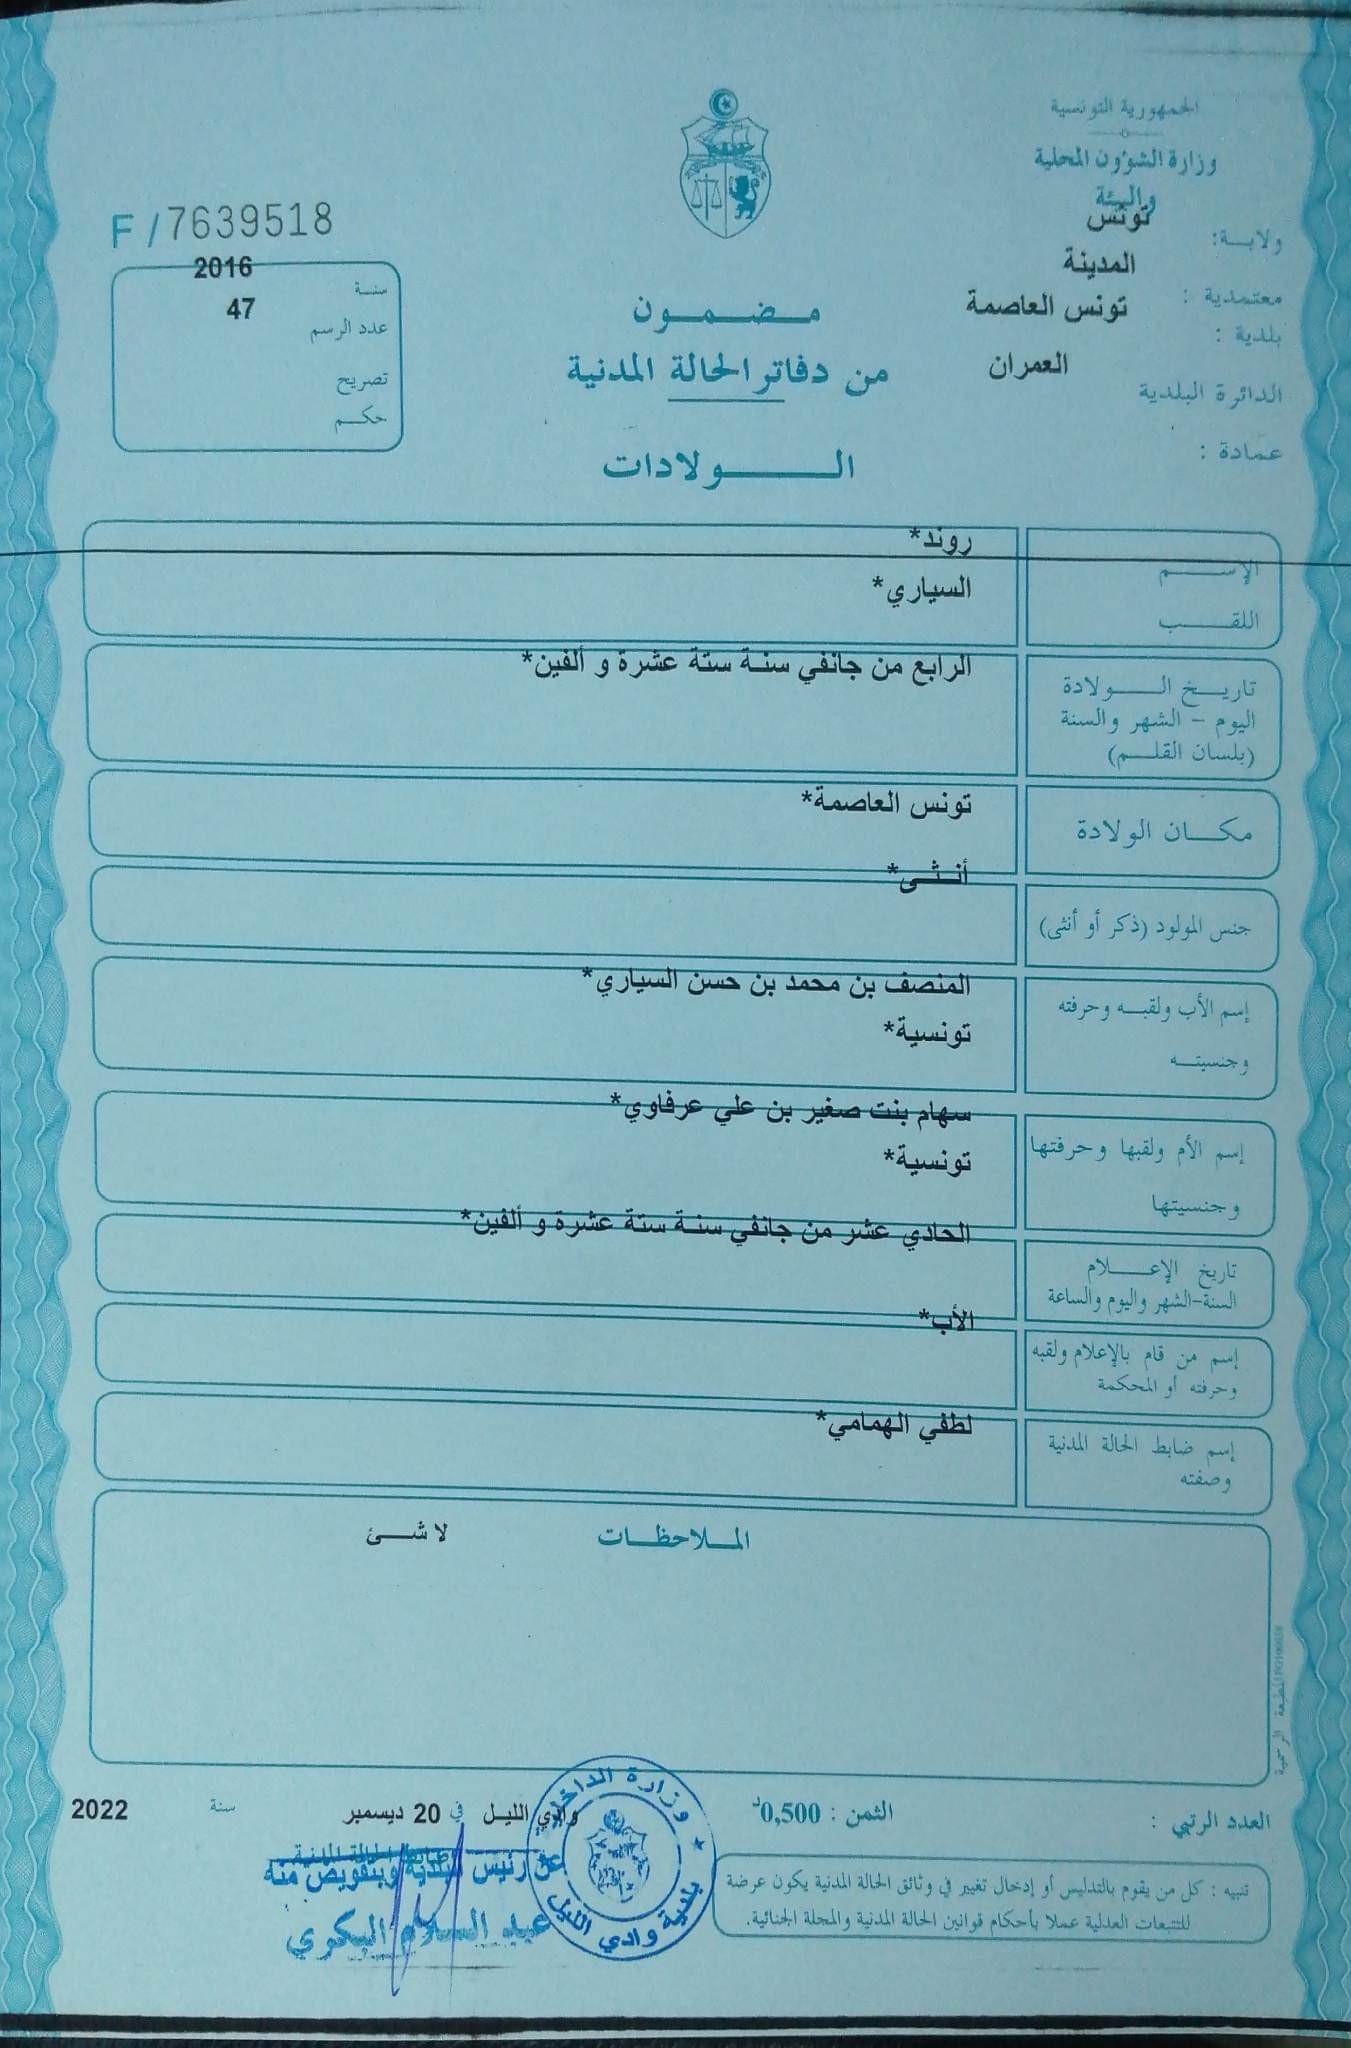 الجمهورية التونسية
وزارة الشؤون المحلية
والبيئة
ولايـة: تونس
معتمدية : المدينة
بلدية : تونس العاصمة
الدائرة البلدية العمران
عمادة :
F / 7639518
سنـة 2016
عدد الرسم 47
تصريح
حكـم
مـضـمـون
من دفاتر الحالة المدنية
الـولادات
الإسـم روند*
اللقـب السياري*
تاريـخ الـولادة الرابع من جانفي سنة ستة عشرة و ألفين*
اليوم - الشهر والسنة
(بلسان القلـم)
مكـان الولادة تونس العاصمة*
جنس المولود (ذكر أو أنثى) أنـثـى*
إسم الأب ولقبـه وحرفته المنصف بن محمد بن حسن السياري*
وجنسيتـه تونسية*
إسم الأم ولقبها وحرفتها سهام بنت صغير بن علي عرفاوي*
وجنسيتها تونسية*
تاريخ الإعـلام الحادي عشر من جانفي سنة ستة عشرة و ألفين*
السنة-الشهر واليوم والساعة
إسم من قام بالإعلام ولقبه الأب*
وحرفته أو المحكمة
إسم ضابط الحالة المدنية لطفي الهمامي*
وصفته
المـلاحظـات لا شـئ
المطبعة الرسمية
العدد الرتبي :
الثمن : 0,500د
وادي الليـل في 20 ديسمبر سنة 2022
ضابط الحالة المدنية
عن رئيس البلدية وبتفويض منه
عبد السلام البكوري
وزارة الداخلية
بلدية وادي الليل
تنبيه : كل من يقوم بالتدليس أو إدخال تغيير في وثائق الحالة المدنية يكون عرضة
للتتبعات العدلية عملا بأحكام قوانين الحالة المدنية والمجلة الجنائية.